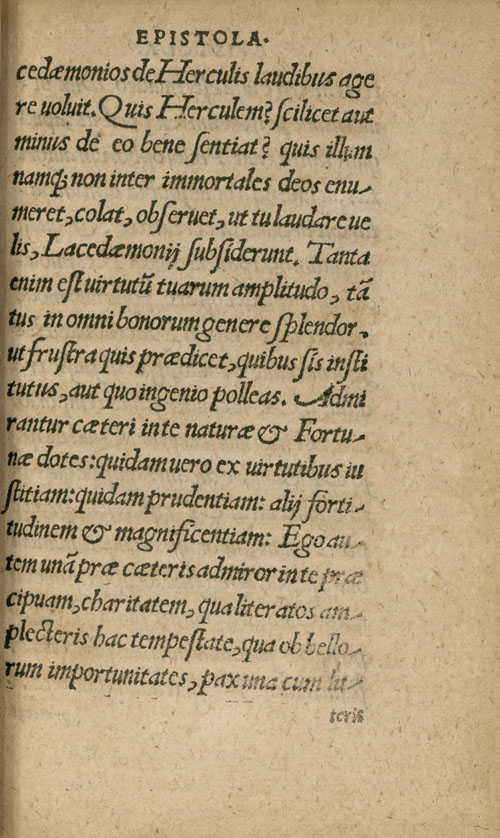 EPISTOLA.
cedæmonios de Herculis laudibus age
re uoluit. Quis Herculem? scilicet aut
minus de eo bene sentiat? quis illum
namq; non inter immortales deos enu-
meret, colat, obseruet, ut tu laudare ue
lis, Lacedæmonij subsiderunt. Tanta
enim est uirtutū tuarum amplitudo, tā
tus in omni bonorum genere splendor,
ut frustra quis prædicet, quibus sis insti
tutus, aut quo ingenio polleas. Admi
rantur cæteri in te naturæ & Fortu-
næ dotes: quidam uero ex uirtutibus iu
stitiam: quidam prudentiam: alij forti-
tudinem & magnificentiam: Ego au-
tem unā præ cæteris admiror in te præ
cipuam, charitatem, qua literatos am-
plecteris hac tempestate, qua ob bello-
rum importunitates, pax una cum lit-
teris